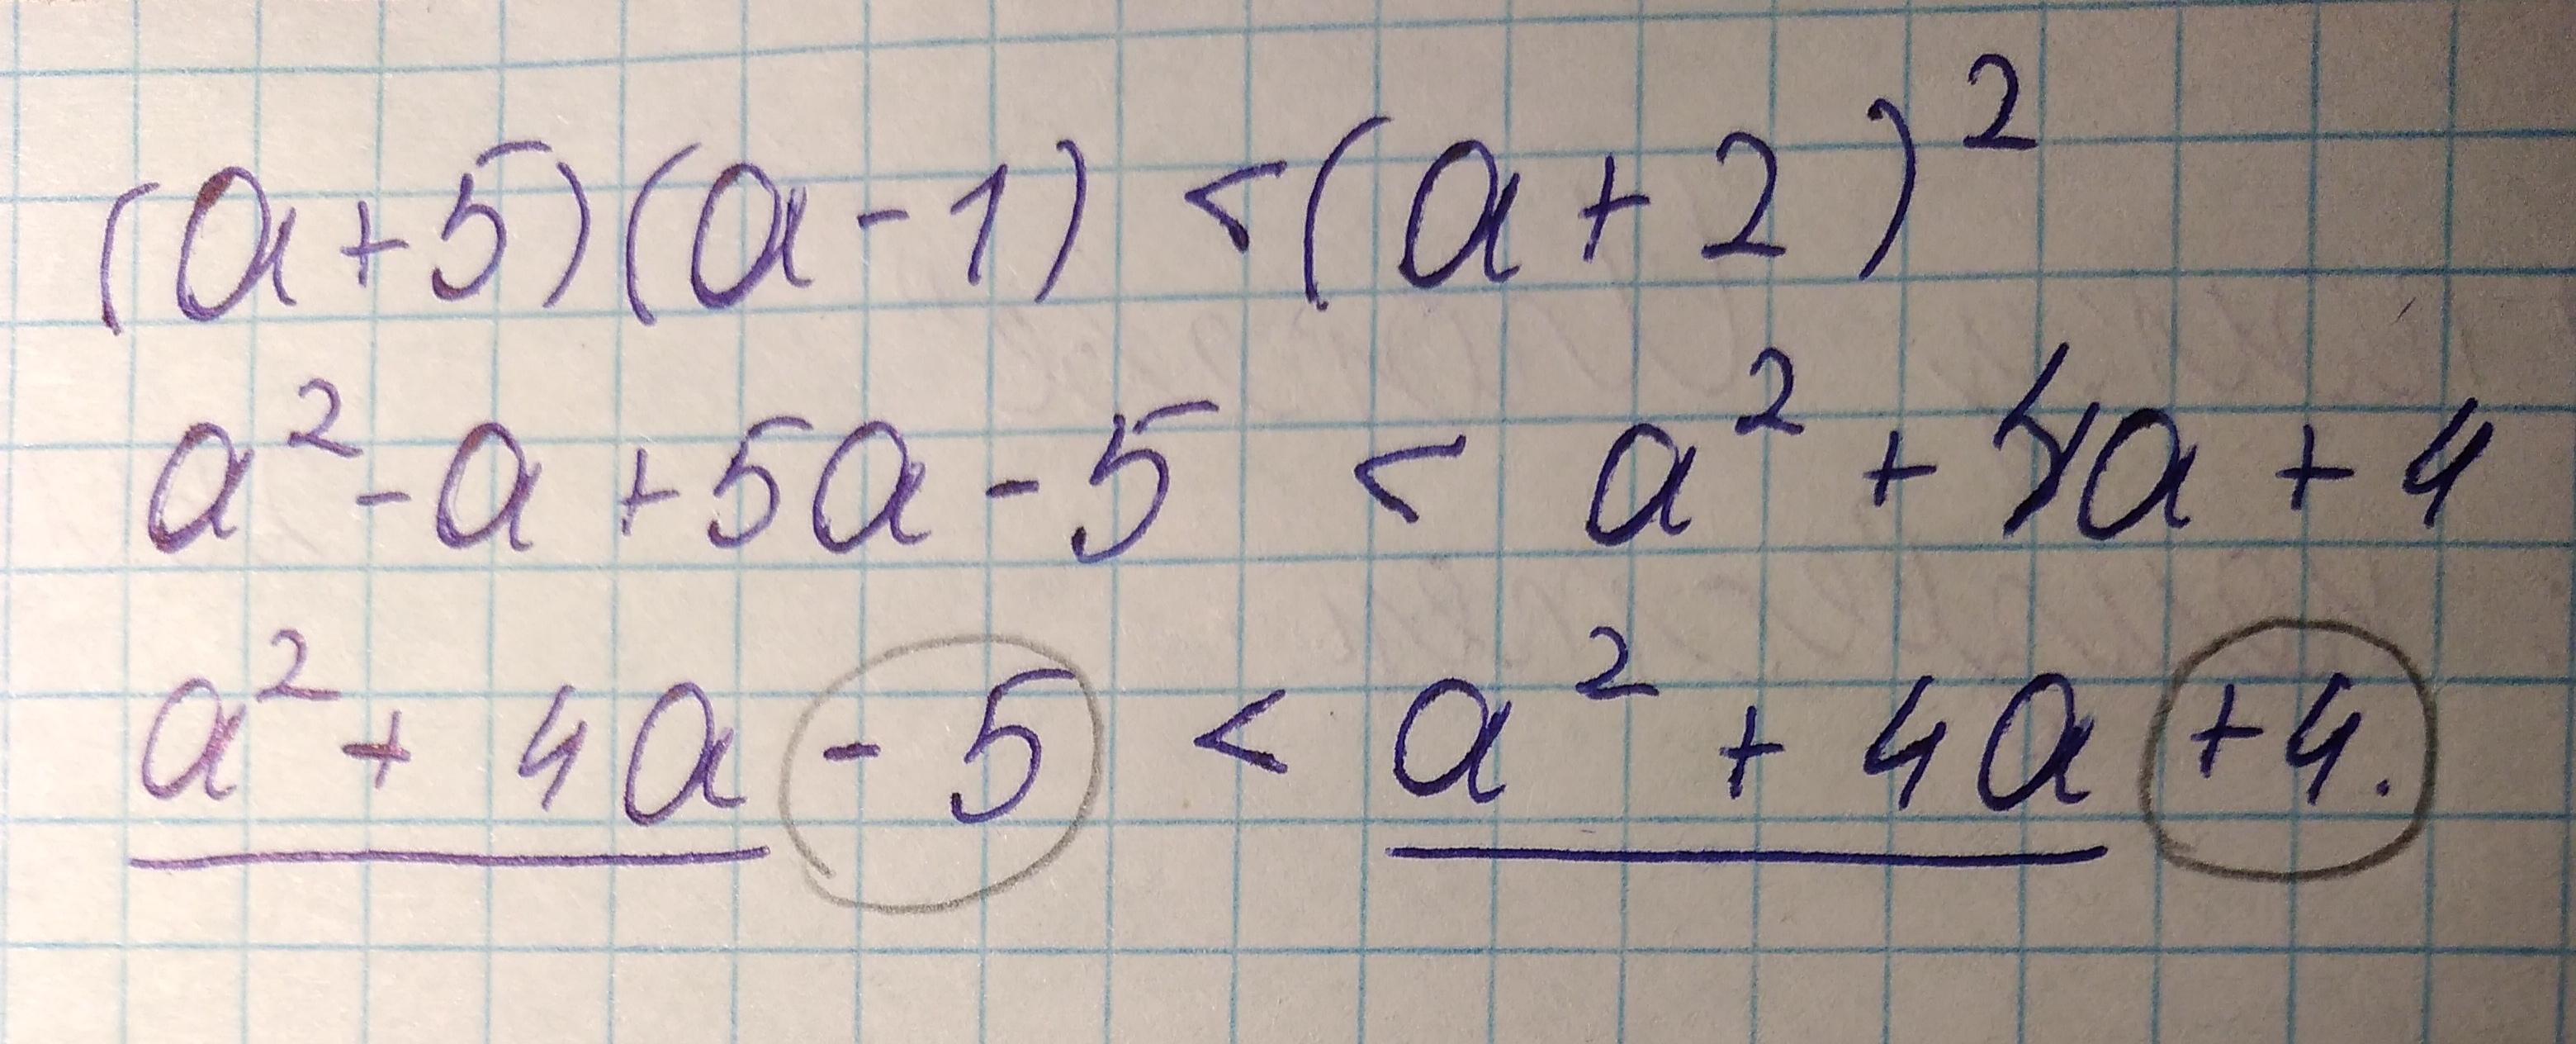 (a+5)(a-1) < (a+2)²
a² - a + 5a - 5 < a² + 4a + 4
a² + 4a - 5 < a² + 4a + 4.